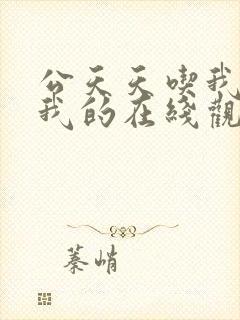 公天天喫我
我的在綫觀
蓁峭